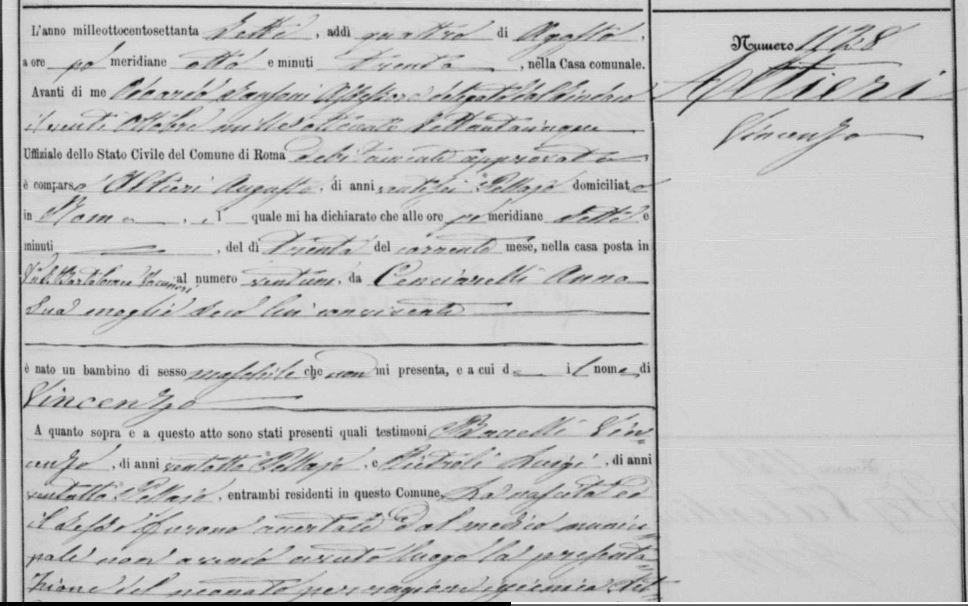 L'anno milleottocentosettanta sette, addì quattro di Agosto,
a ore po meridiane otto e minuti trenta, nella Casa comunale.
Avanti di me Odoardo Sansoni Assessore delegato dal Sindaco
il venti Ottobre mille ottocento settantacinque
Uffiziale dello Stato Civile del Comune di Roma debitamente approvato
è comparso Altieri Augusto, di anni ventisei Vellajo domiciliato
in Roma, il quale mi ha dichiarato che alle ore po meridiane sette e
minuti, del dì trenta del corrente mese, nella casa posta in
Via al numero ventuno, da Cenciarelli Anna
sua moglie seco lui convivente
è nato un bambino di sesso maschile che non mi presenta, e a cui dà il nome di
Vincenzo
A quanto sopra e a questo atto sono stati presenti quali testimoni Vin-
cenzo, di anni ventotto, e Luigi, di anni
ventotto, entrambi residenti in questo Comune. La nascita ed
il sesso furono accertati dal medico munici-
pale non avendo avuto luogo la presenta-
zione del neonato per ragione igienica
Numero 1128
Altieri
Vincenzo